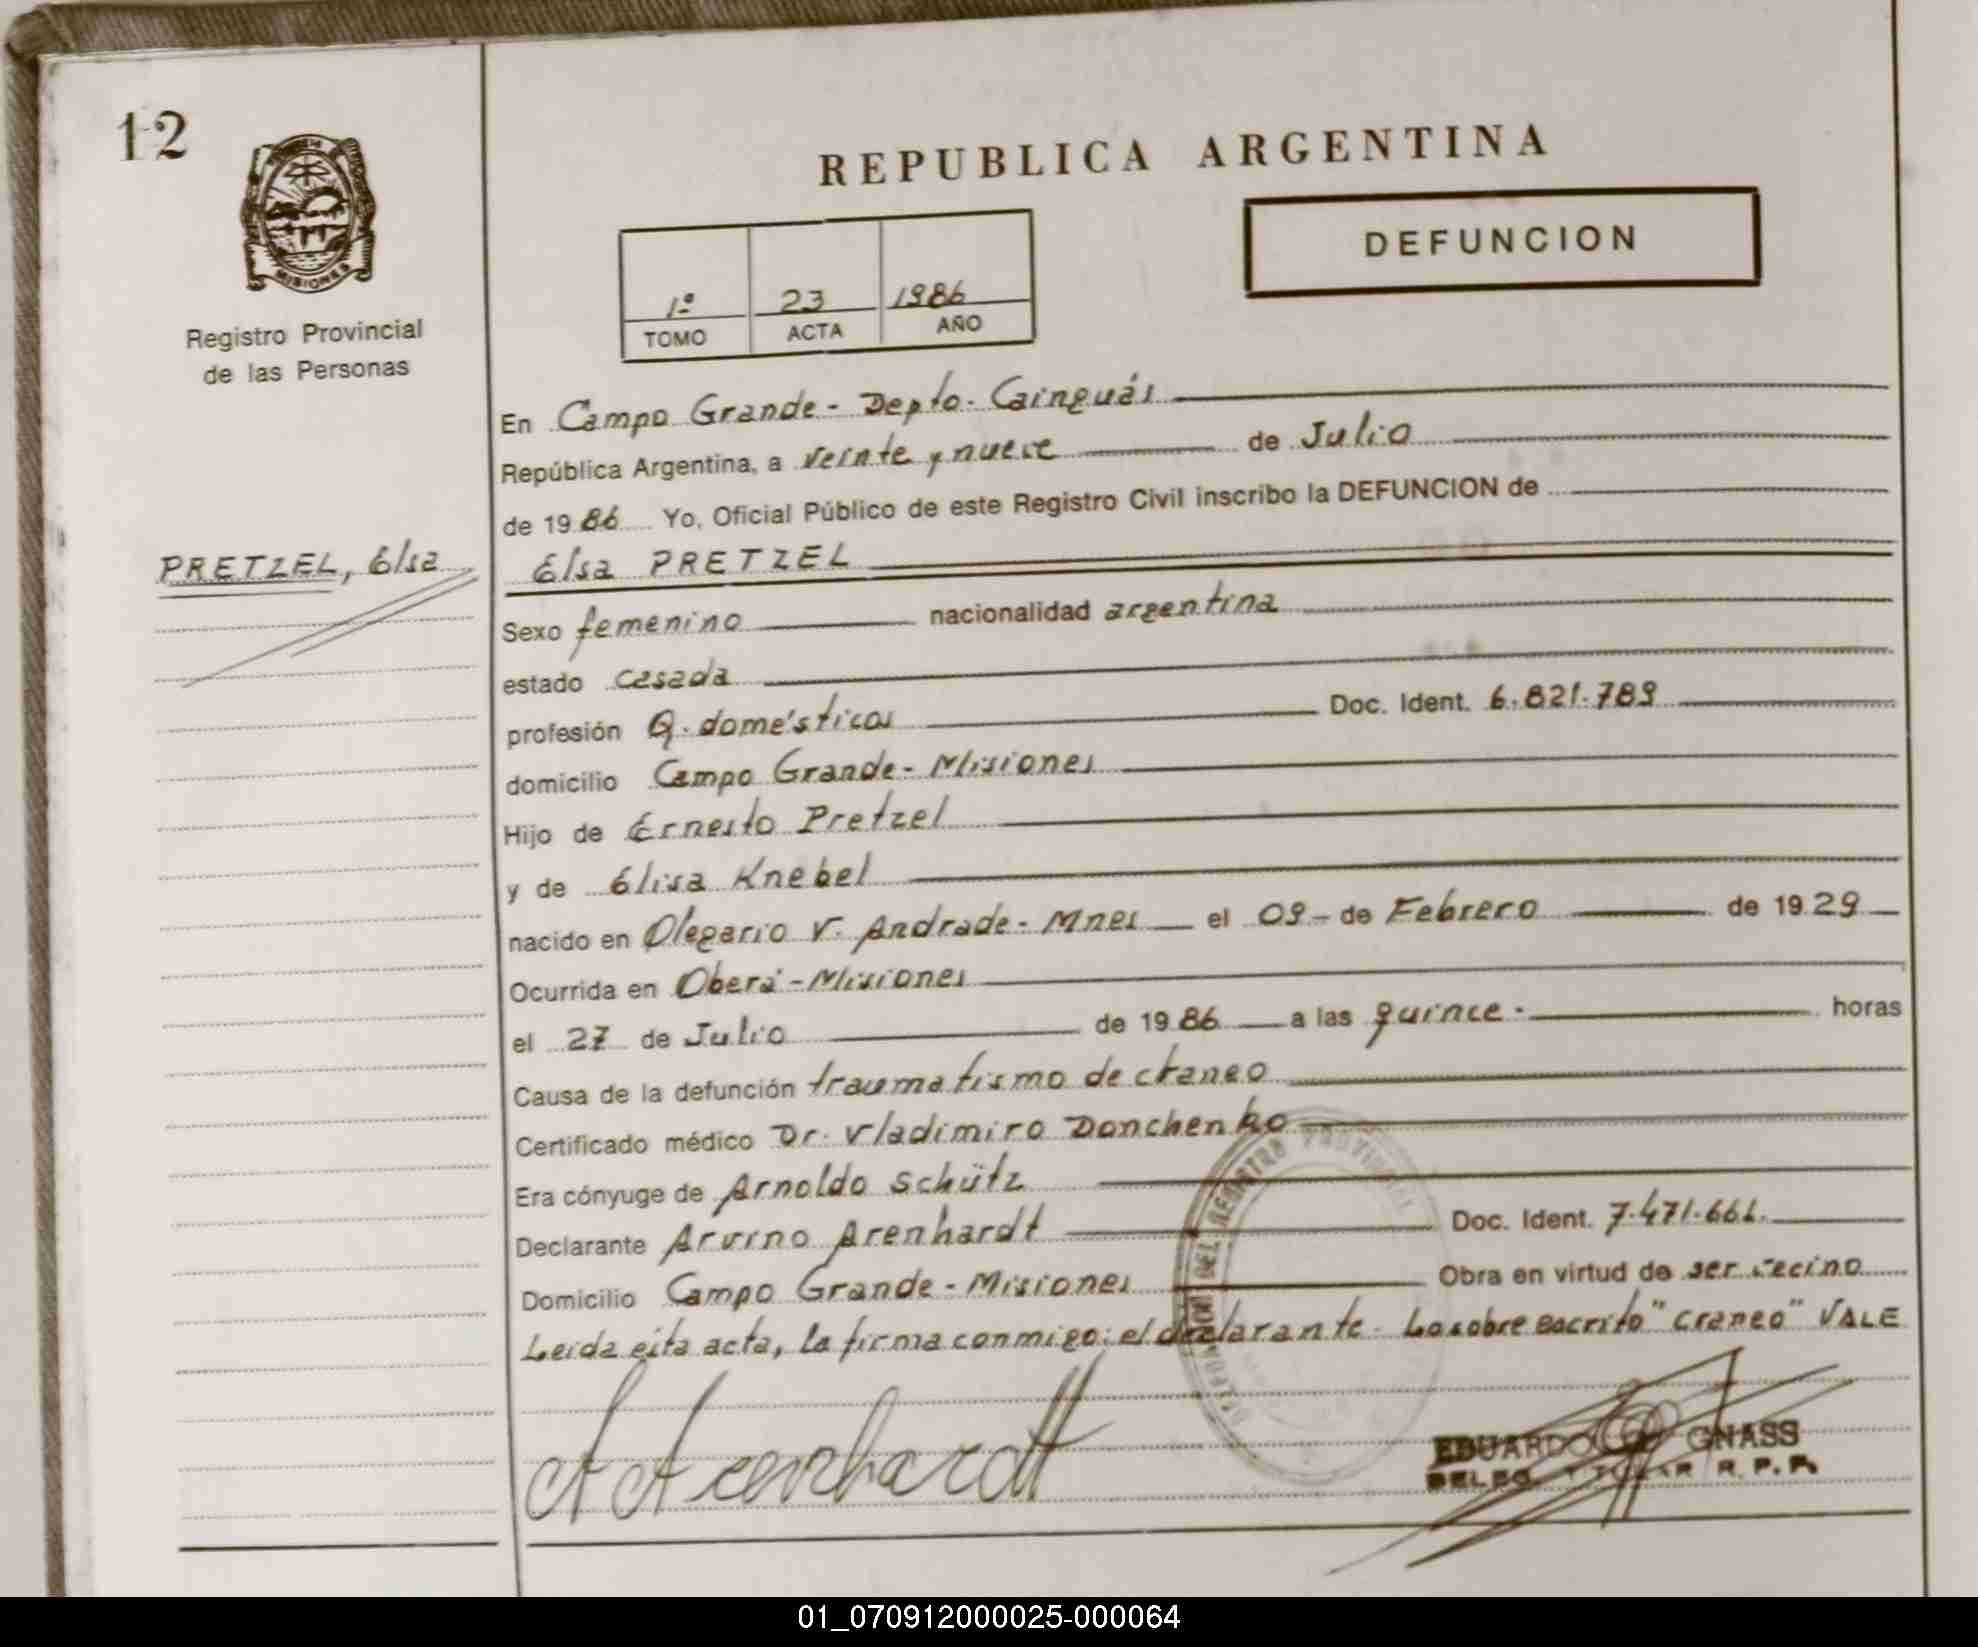 12
MISIONES
Registro Provincial
de las Personas
REPUBLICA ARGENTINA
DEFUNCION
1º 23 1986
TOMO ACTA AÑO
En Campo Grande - Depto. Cainguás
República Argentina, a veinte y nueve de Julio
de 1986 Yo, Oficial Público de este Registro Civil inscribo la DEFUNCION de
PRETZEL, Elsa
Elsa PRETZEL
Sexo femenino nacionalidad argentina
estado casada
profesión Q. domésticos Doc. Ident. 6.821.789
domicilio Campo Grande - Misiones
Hijo de Ernesto Pretzel
y de Elisa Knebel
nacido en Olegario V. Andrade - Mnes el 09 - de Febrero de 1929
Ocurrida en Oberá - Misiones
el 27 de Julio de 1986 a las quince. horas
Causa de la defunción traumatismo de craneo
Certificado médico Dr. Vladimiro Donchenko
Era cónyuge de Arnoldo Schütz
Declarante Arvino Arenhardt Doc. Ident. 7.471.661.
Domicilio Campo Grande - Misiones Obra en virtud de ser vecino
Leída esta acta, la firma conmigo: el declarante. Lo sobre escrito "craneo" VALE
DEL REGISTRO PROVINCIAL
A Arenhardt
EDUARDO GNASS
DELEG. TITULAR R. P. P.
01_070912000025-000064